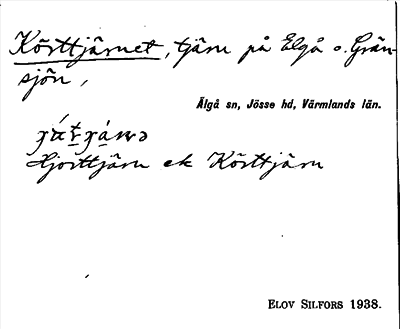 Körttjärnet, tjärn på Elgå o. Grän-
sjön,
Älgå sn, Jösse hd, Värmlands län.
Hjorttjärn ek Körttjärn
ELOV SILFORS 1938.